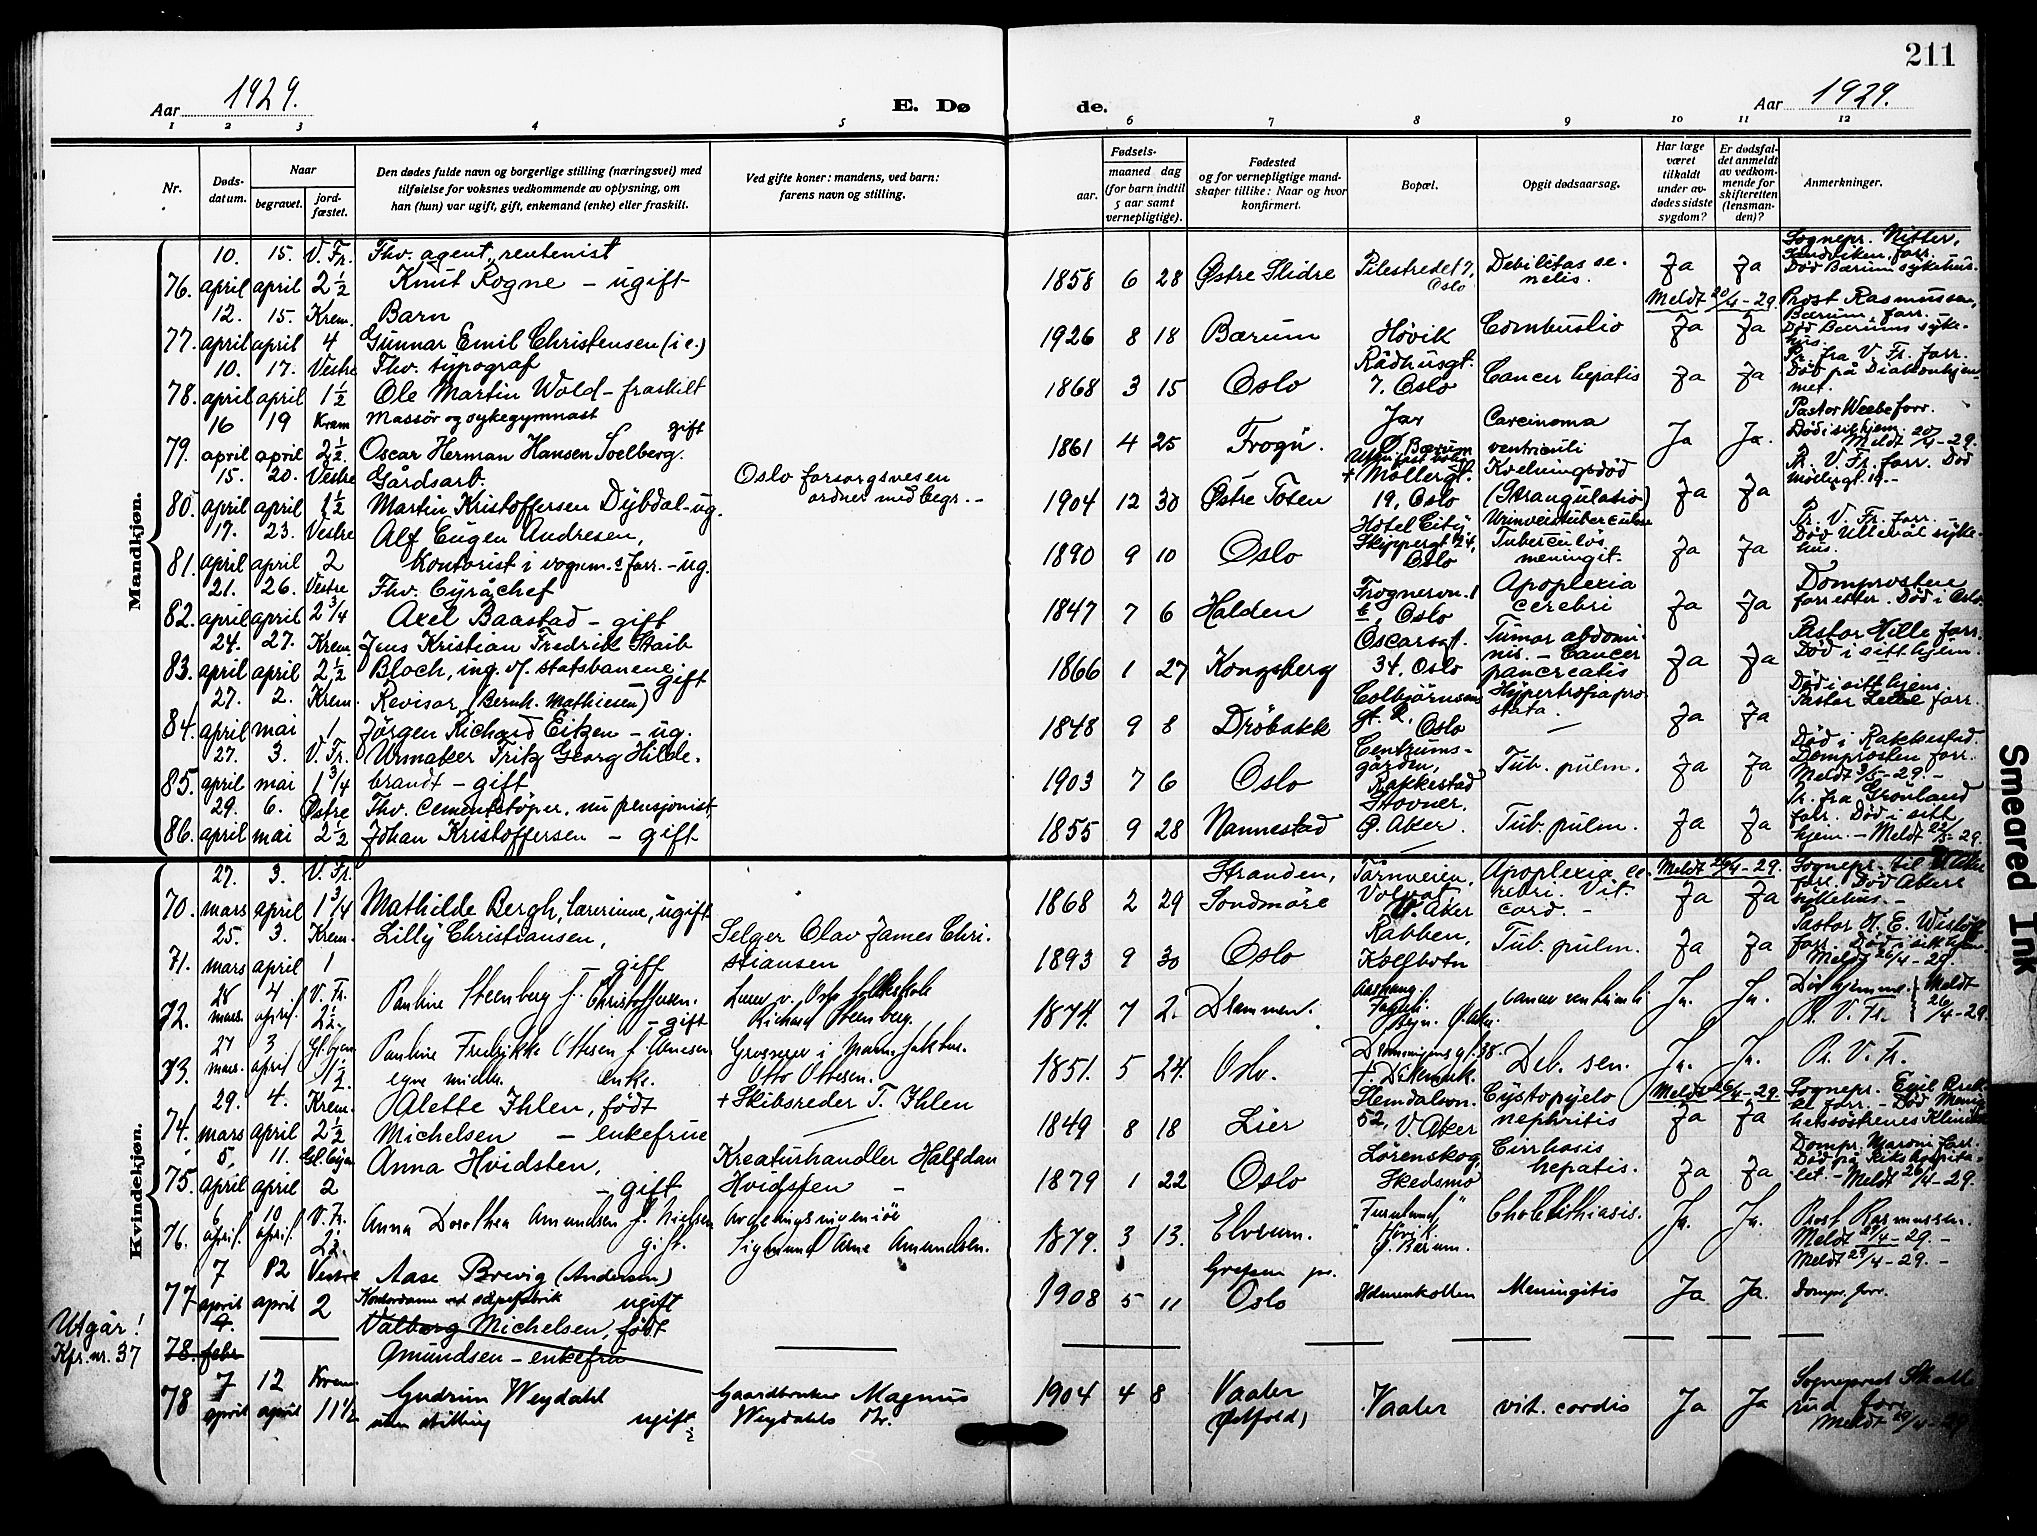 211
Aar 1929.
E. Dø
de.
Aar 1929.
1 2 3 4 5 6 7 8 9 10 11 12
Nr.
Døds-
datum.
Naar
begravet.
jord-
fæstet.
Den dødes fulde navn og borgerlige stilling (næringsvei) med
tilføielse for voksnes vedkommende av oplysning, om
han (hun) var ugift, gift, enkemand (enke) eller fraskilt.
Ved gifte koner: mandens, ved barn:
farens navn og stilling.
Fødsels-
aar.
maaned dag
(for barn indtil
5 aar samt
vernepligtige).
Fødested
og for vernepligtige mand-
skaper tillike: Naar og hvor
konfirmert.
Bopæl.
Opgit dødsaarsag.
Har læge
været
tilkaldt
under av-
dødes sidste
sygdom?
Er dødsfal-
det anmeldt
av vedkom-
mende for
skifteretten
(lensman-
den)?
Anmerkninger.
Mandkjøn.
10. 15. V. Fr. Fhv. agent, rentenist
76. april april 2 1/2 Knut Rogne - ugift
1858 6 28 Østre Slidre Pilestredet 7, Oslo Debilitas se-
nelis. Ja Ja Sognepr. Nitter,
Sandviken, forr.
Død Bærum sykehus.
Meldt 20/4-29.
12. 15. Krem. Barn
77. april april 4 Gunnar Emil Christensen (i e.)
1926 8 18 Bærum Høvik Combustio Ja Ja Prost Rasmussen,
Bærum, forr.
Død Bærums syke-
hus.
10. 17. Vestre Fhv. typograf
78. april april 1 1/2 Ole Martin Wold - fraskilt
1868 3 15 Oslo Rådhusgt.
7. Oslo Cancer hepatis Ja Ja Pr. fra V. Fr. forr.
Død på Diakonhjem-
met.
16 19 Krem Massør og sykegymnast
gift
79. april april 2 1/2 Oscar Herman Hansen Soelberg.
1861 4 25 Frogn. Jar
Ø. Bærum Carcinoma
ventriculi Ja Ja. Pastor Weebe forr.
Død i sit hjem.
Meldt 20/4-29.
15. 20. Vestre Gårdsarb.
80. april april 1 1/2 Martin Kristoffersen Dybdal-ug.
Oslo forsorgsvesen
ordner med begr. -
1904 12 30 Østre Toten Uten fast bolig
+ Møllergt.
19, Oslo Kvelningsdød
(Strangulatio) Ja Ja Pr. V. Fr. forr. Død
Møllergt. 19.-
17. 23. Vestre Alf Eugen Andresen,
81. april april 2 Kontorist i vognm. forr. - ug.
1890 9 10 Oslo Hotel City
Skippergt. 24,
Oslo Urinveistuberculose
Tuberculos.
meningit. Ja Ja Pr. V. Fr. forr. -
Død Ullevål syke-
hus.
21. 26. Vestre Fhv. Byråchef
82. april april 2 3/4 Axel Baastad - gift
1847 7 6 Halden Frognervn. 1
b, Oslo Apoplexia
cerebri Ja Ja Domprosten
forretter. Død i Oslo.
24. 27. Krem. Jens Kristian Fredrik Staib
83. april april 2 1/2 Bloch, ing. v/ statsbanene.
gift
1866 1 27 Kongsberg Oscarsgt.
34, Oslo Tumor abdomi-
nis. - Cancer
pancreatis Ja Ja Pastor Hille forr.
Død i sitt hjem.
27. 2. Krem. Revisor, (Bernh. Mathiesen)
84. april mai 1 Jørgen Richard Eitzen - ug.
1848 9 8 Drøbakk Colbjørnsens
gt. Oslo Hypertrofia pro-
stata. Ja Ja Død i sitt hjem.
Pastor forr.
27. 3. V. Fr. Urmaker Fritz Georg Hilde-
85. april mai 1 3/4 brandt - gift
1903 7 6 Oslo Centrums-
gården,
Rakkestad Tub. pulm. Ja Ja Død i Rakkestad.
Domprosten forr.
Meldt 3/5-29. -
29. 6. Østre Fhv. cementstøper, nu pensjonist,
86. april mai 2 1/2 Johan Kristoffersen - gift
1855 9 28 Nannestad Stovner,
Ø. Aker. Tub. pulm. Ja Ja Pr. fra Grønland
forr. Død i sitt
hjem. - Meldt 22/5-29.
Kvindekjøn.
27. 3. V. Fr.
70. mars april 1 3/4 Mathilde Bergh, lærerinne, ugift
1868 2 29 Stranden,
Søndmøre Tårnveien,
Volvat,
V. Aker Apoplexia ce-
rebri. Vit.
cord. - Meldt 26/4-29.
Ja Ja Sognepr. til V. Aker
forr. Død Akers
sykehus. -
25. 3. Krem. Lilly Christiansen,
71. mars april 1 gift
Selger Olav James Chri-
stiansen
1893 9 30 Oslo Rabben,
Kolbotn Tub. pulm. Ja Ja Pastor H. E. Wisløff
forr. Død i sitt hjem.
Meldt 26/4-29.
28 4 V. Fr.
72. mars. april. 2 1/2. Pauline Steenberg f. Christoffersen.
- gift
Lærer v. Oslo folkeskole
Richard Steenberg.
1874. 7 2. Drammen. Ja. Ja. Død hjemme. Meldt 26/4-29.
Pr. V. Fr.
27 3
73. mars. april 1 1/2. Pauline Fredrikke Ottesen f. Arnesen
egne midler. enke.
Grosserer i
Otto Ottesen.
1851. 5 24. Oslo. Deb. sen. Ja. Ja. Pr. V. Fr.
29. 4. Krem. Alette Ihlen, født
74. mars april 2 1/2 Michelsen - enkefrue
+ Skibsreder T. Ihlen
1849 8 18 Lier Slemdalsvn.
52, V. Aker Cystopyelo
nephritis Meldt 26/4-29.
Ja Ja Sognepr. Egil
forr. - Død Menig-
hetssøstrenes Klinikk
5. 11. Gl. Aker Anna Hvidsten,
75. april april 2 - gift
Kreaturhandler Halfdan
Hvidsten -
1879 1 22 Oslo Lørenskog,
Skedsmo Cirrhosis
hepatis. Ja Ja Dompr. Maroni forr.
Død på Rikshospita-
let. - Meldt 26/4-29.
6 10 V. Fr.
76. april. april. 2 1/2. Anna Dorothea Amundsen f. Nielsen
gift.
Avdelingsingeniør
Sigmund Arne Amundsen.
1879. 3 13. Elverum. "Furulund"
Høvik.
Ø. Bærum. Cholelithiasis. Ja. Ja. Prost Rasmussen.
Meldt 29/4-29. -
Meldt 29/4-29. -
7 12 Vestre Aase Brevig (Andersen)
77 april april 2 Kontordame ved såpefabrik ugift
1908 5 11 Grefsen pr.
Oslo Holmenkollen Meningitis Ja Ja. Dompr. forr.
Utgår!
Kfr. nr. 37
9.
78. febr Valborg Michelsen, født
Amundsen - enkefru
7 12 Krem
78 april april 11 1/2 Gudrun Weydahl
uten stilling ugift
Gaardbruker Magnus
Weydahls dtr.
1904 4 8 Vaaler
(Østfold) Vaaler vit. cordis Ja Ja Sogneprest Skatt
rud forr
Meldt 29/4-29
Smeared Ink